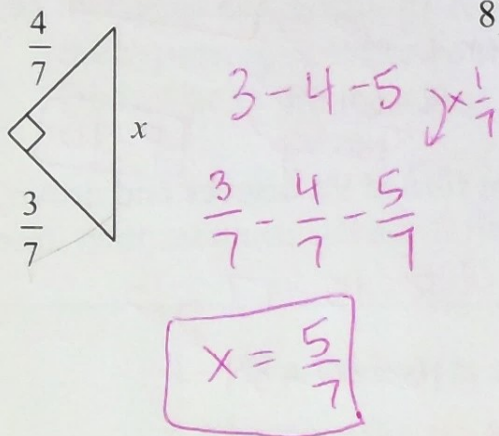 8
4/7
x
3/7
3-4-5 ×1/7
3/7 - 4/7 - 5/7
x = 5/7